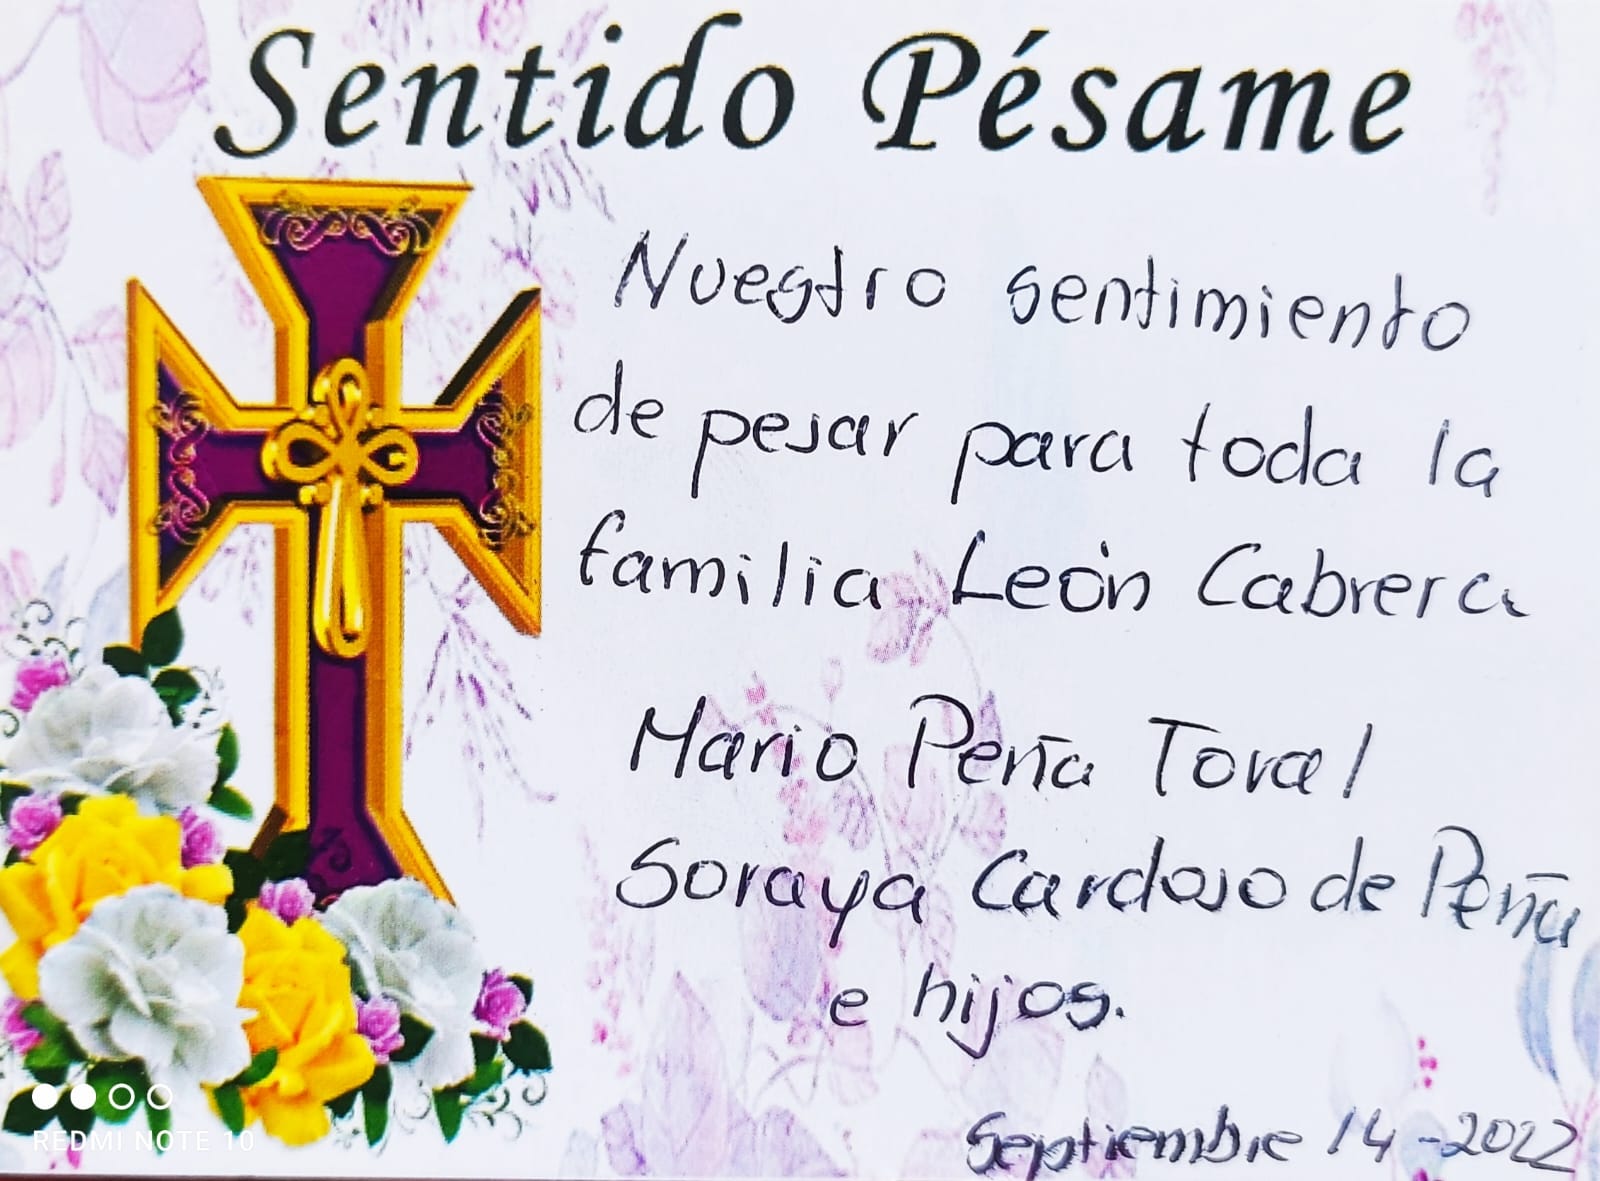 Sentido Pésame
Nuestro sentimiento
de pesar para toda la
familia León Cabrera
Mario Peña Toval
Soraya Cardoso de Peña
e hijos.
Septiembre 14-2022
REDMI NOTE 10